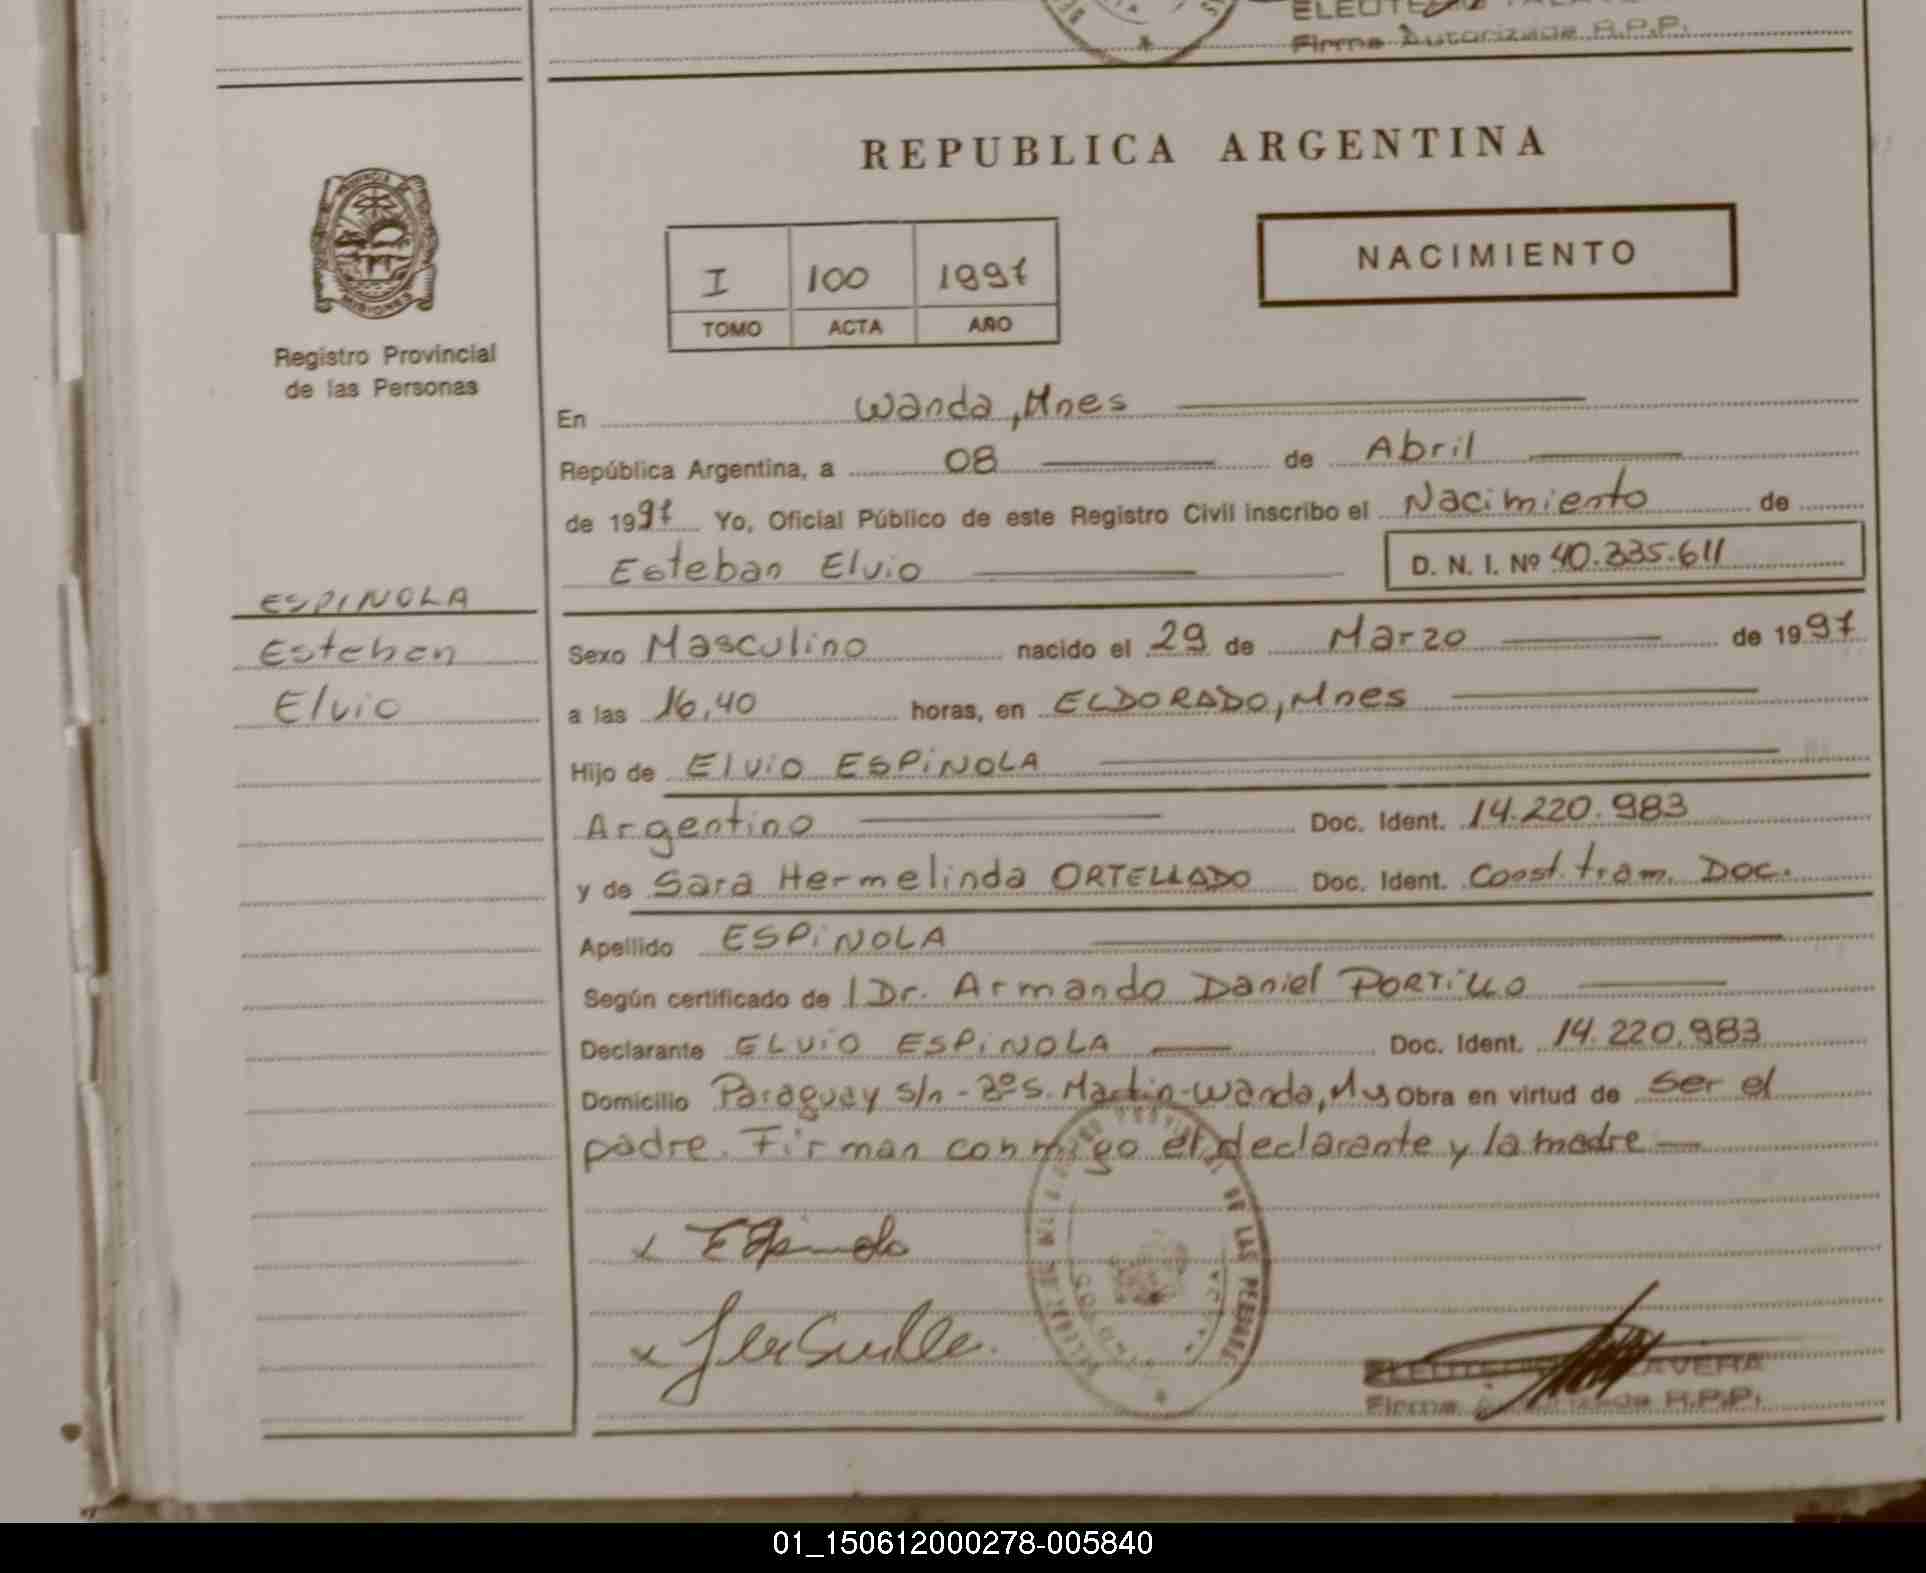 Firma Autorizada R.P.P.
REPUBLICA ARGENTINA
NACIMIENTO
I 100 1997
TOMO ACTA AÑO
PROVINCIA DE
MISIONES
Registro Provincial
de las Personas
En Wanda, Mnes
República Argentina, a 08 de Abril
de 1997 Yo, Oficial Público de este Registro Civil inscribo el Nacimiento de
Esteban Elvio D. N. I. Nº 40.335.611
ESPINOLA
Esteban
Elvio
Sexo Masculino nacido el 29 de Marzo de 1997
a las 16,40 horas, en ELDORADO, Mnes
Hijo de Elvio ESPINOLA
Argentino Doc. Ident. 14.220.983
y de Sara Hermelinda ORTELLADO Doc. Ident. Const. tram. Doc.
Apellido ESPINOLA
Según certificado de l Dr. Armando Daniel PORTILLO
Declarante ELVIO ESPINOLA Doc. Ident. 14.220.983
Domicilio Paraguay s/n - Bº S. Martin - Wanda, Mns Obra en virtud de ser el
padre. Firman conmigo el declarante y la madre
x Espinola
x
DE LAS PERSONAS
Firma Autorizada R.P.P.
01_150612000278-005840